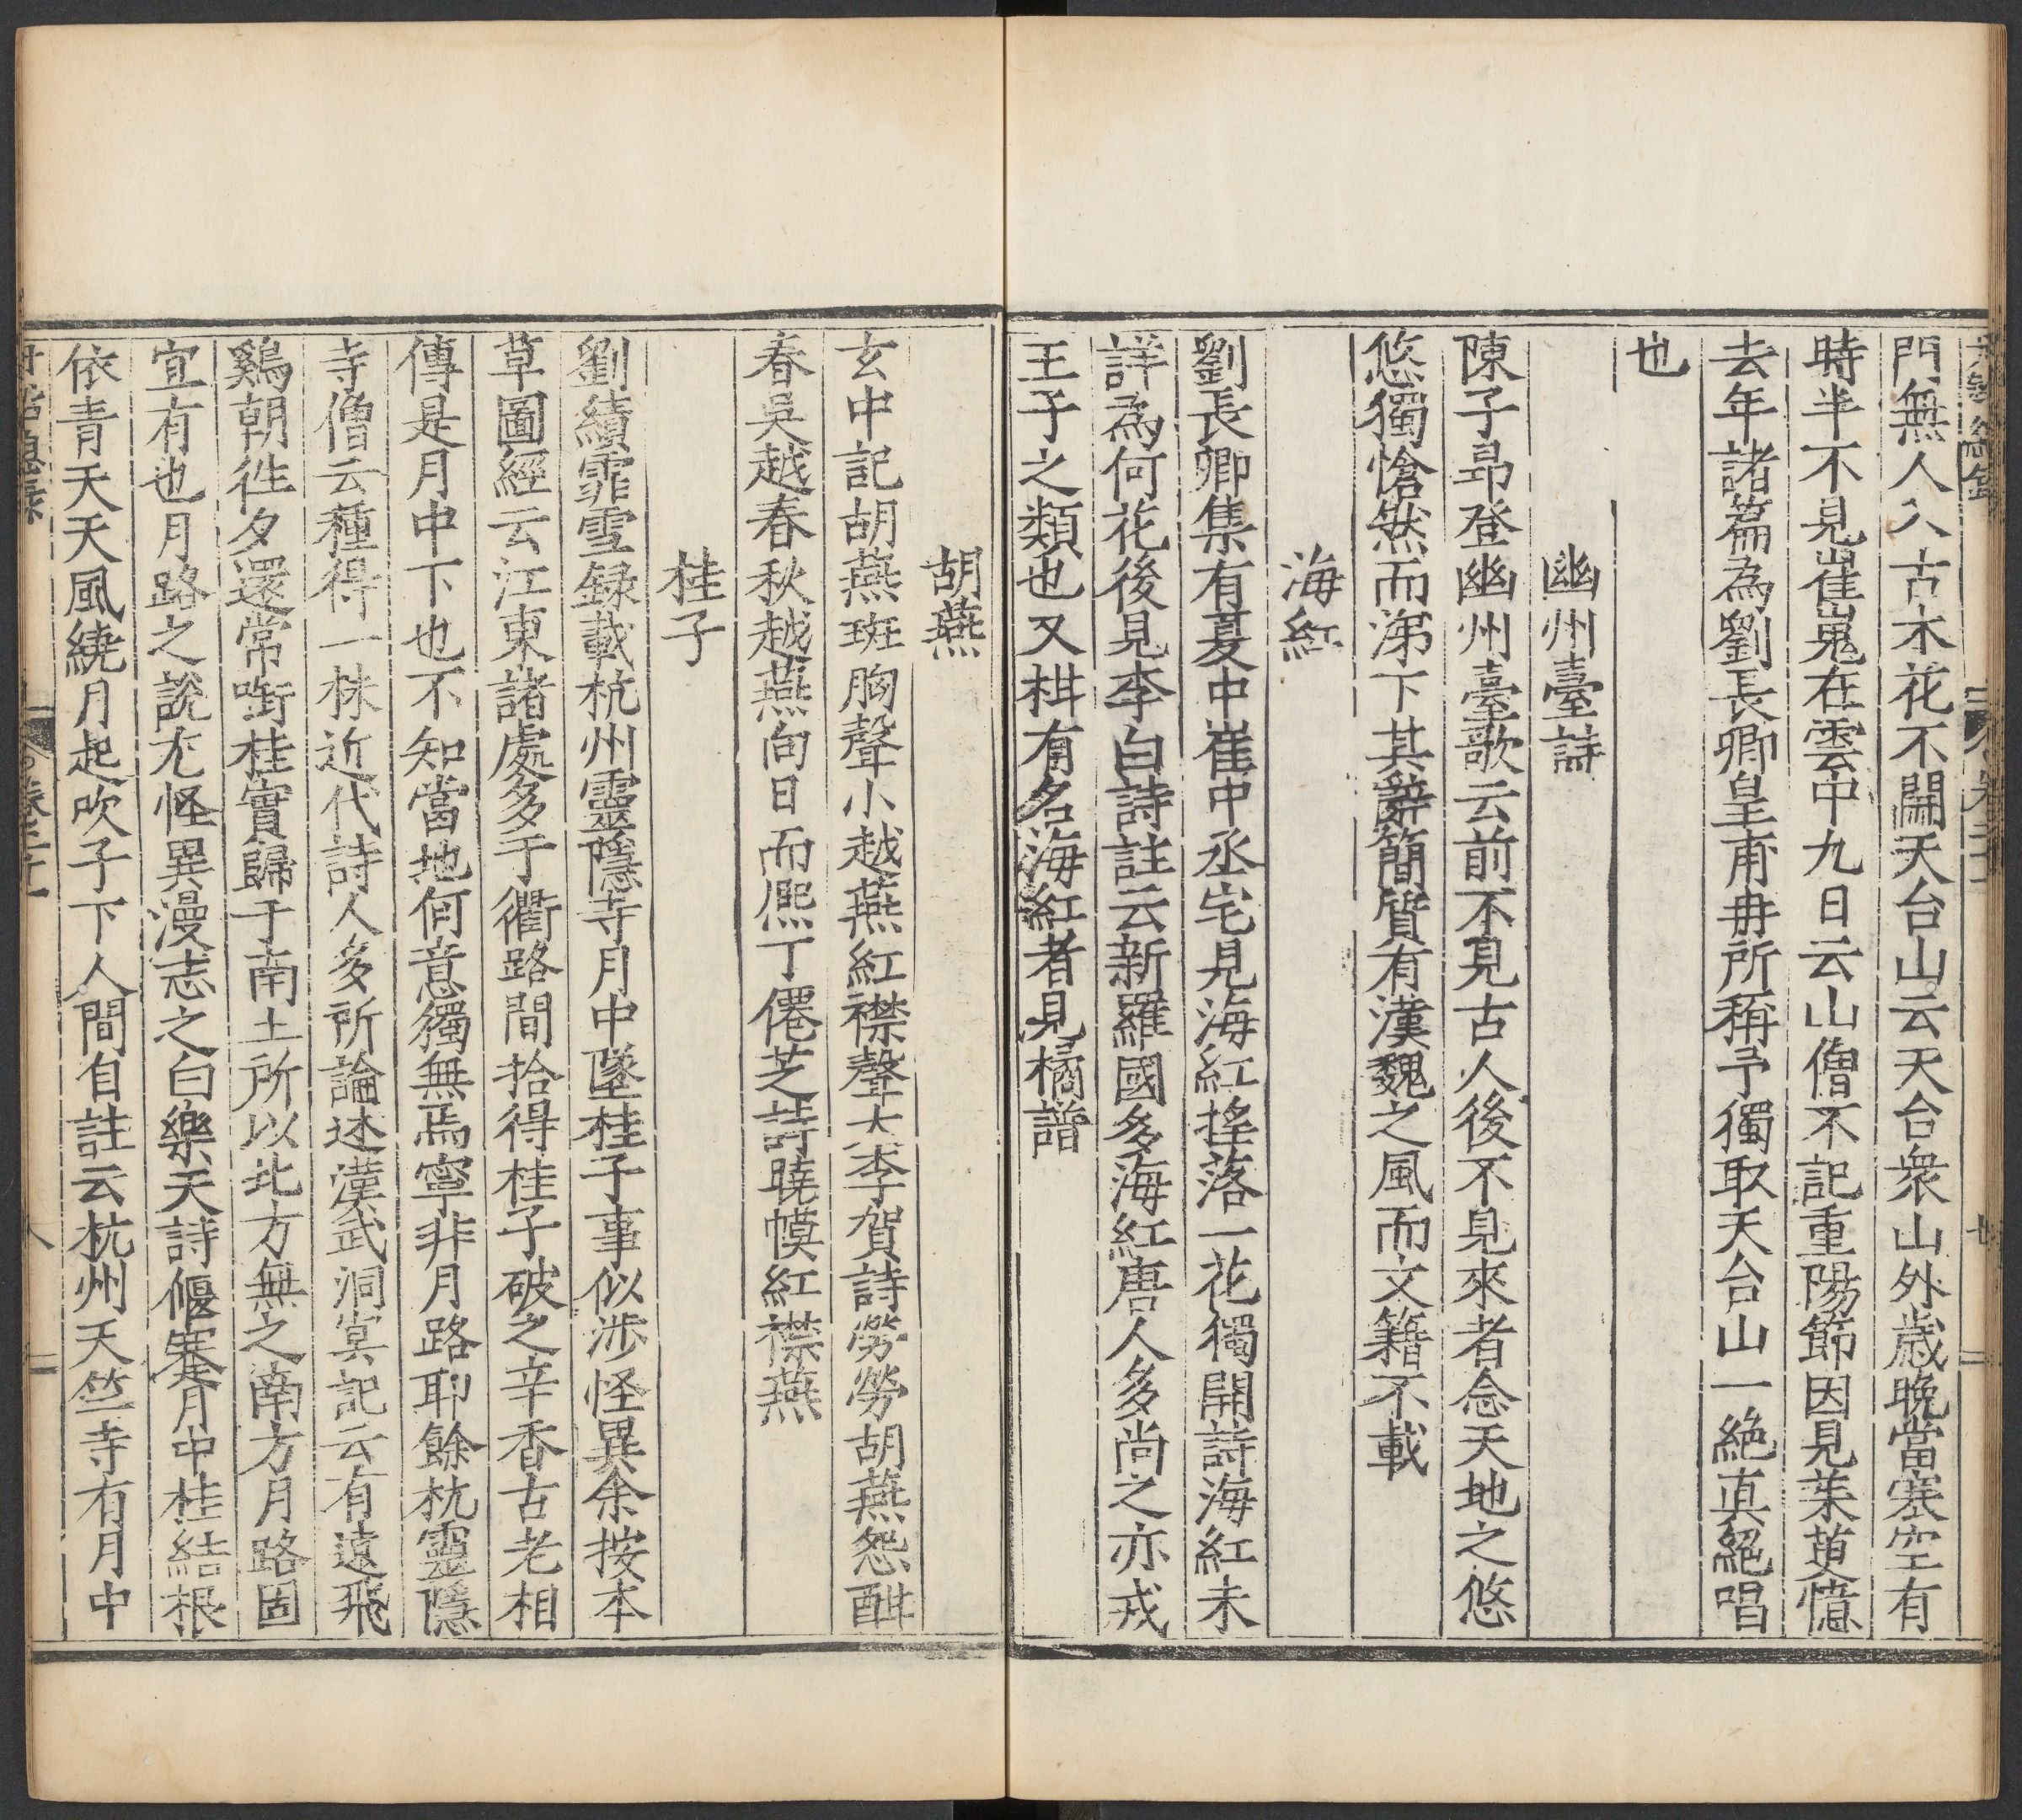 門無人入古木花不開天台山云天台衆山外歲晚當寒空有
時半不見崔嵬在雲中九日云山僧不記重陽節因見茱萸憶
去年諸篇為劉長卿皇甫冉所稱予獨取天台山一絶真絕唱
也
幽州臺詩
陳子昂登幽州臺歌云前不見古人後不見來者念天地之悠
悠獨愴然而涕下其辭簡質有漢魏之風而文籍不載
海紅
劉長卿集有夏中崔中丞宅見海紅搖落一花獨開詩海紅未
詳為何花後見李白詩註云新羅國多海紅唐人多尚之亦戎
王子之類也又柑有名海紅者見橘譜
胡燕
玄中記胡燕斑胸聲小越燕紅襟聲大李賀詩勞勞胡燕怨酣
春吳越春秋越燕向日而熈丁僊芝詩曉幙紅襟燕
桂子
劉績霏雪録載杭州靈隱寺月中墜桂子事似涉怪異余按本
草圖經云江東諸處多于衢路間拾得桂子破之辛香古老相
傳是月中下也不知當地何意獨無焉寧非月路耶餘杭靈隱
寺僧云種得一株近代詩人多所論述漢武洞冥記云有遠飛
鷄朝徃夕還常銜桂實歸于南土所以北方無之南方月路固
宜有也月路之說尤怪異漫志之白樂天詩偃蹇月中桂結根
依青天天風繞月起吹子下人間自註云杭州天竺寺有月中